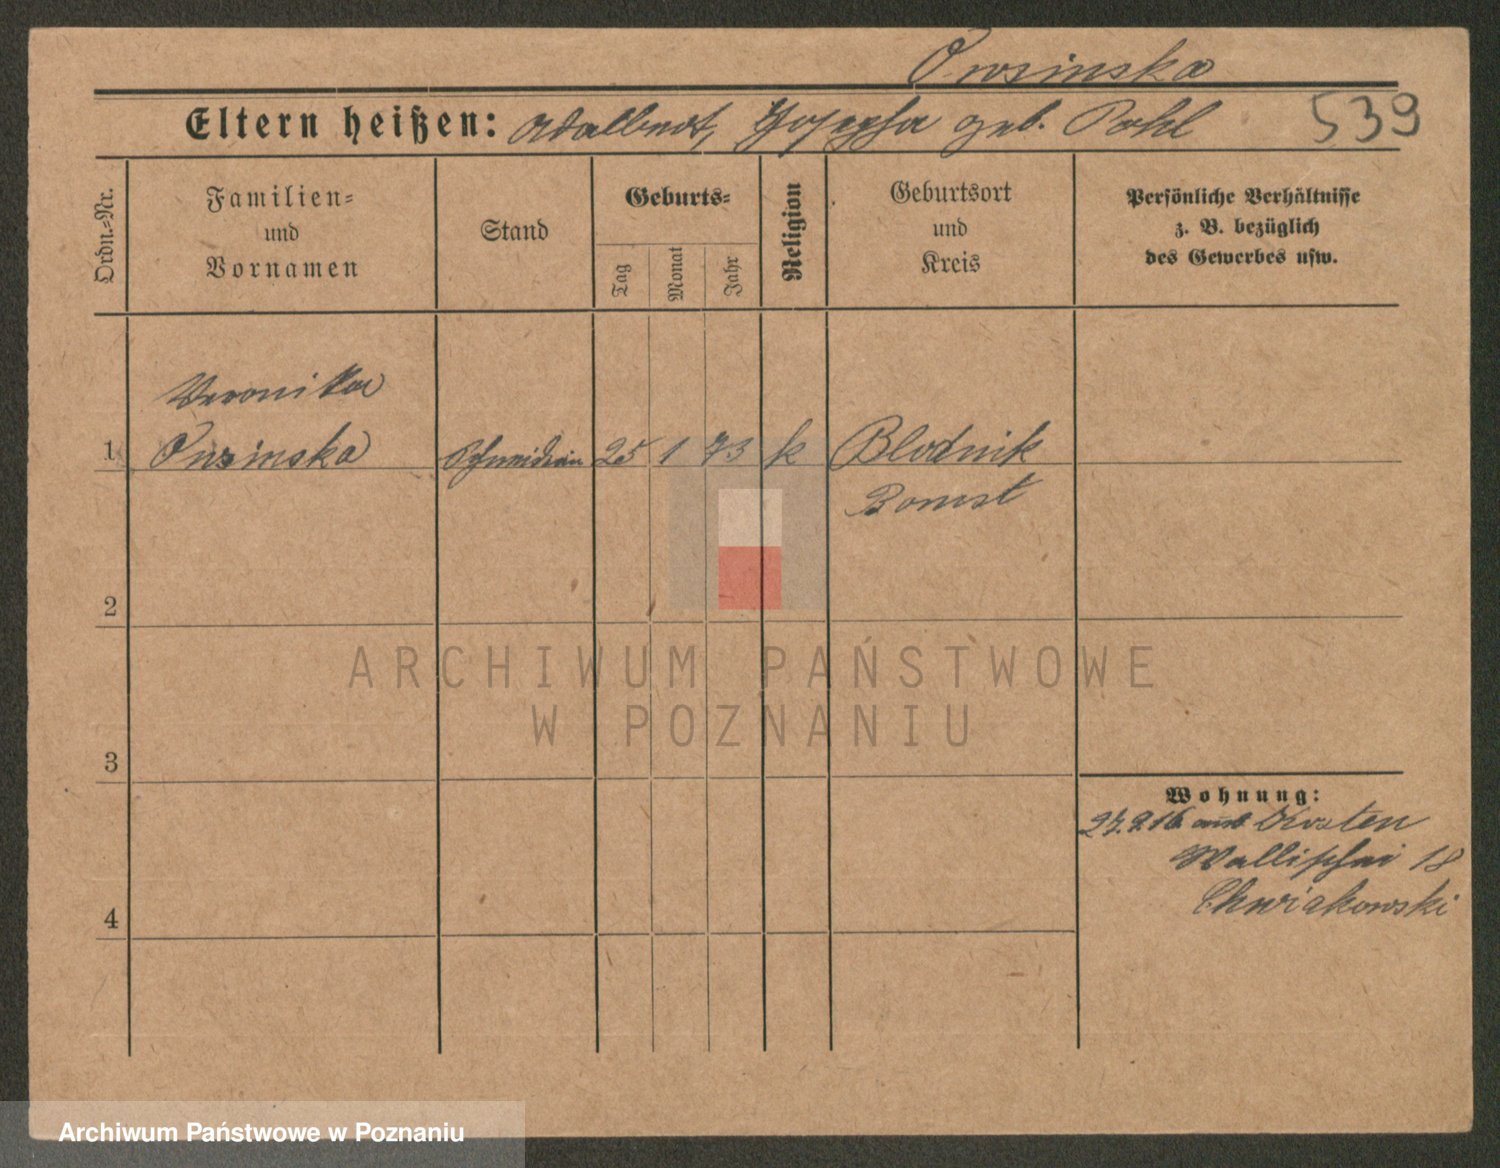 Owsinska
Eltern heißen: Adalbert, Josepha geb. Pohl
539
Ordn.=Nr.
Familien=
und
Vornamen
Stand
Geburts=
Tag
Monat
Jahr
Religion
Geburtsort
und
Kreis
Persönliche Verhältnisse
z. B. bezüglich
des Gewerbes usw.
Veronika
1 Owsinska Schneiderin 25 1 73 k Blodnik
Bomst
2
ARCHIWUM PAŃSTWOWE
W POZNANIU
3
Wohnung:
27.9.16 Kosten
Wallischei 18
Chwiakowski
4
Archiwum Państwowe w Poznaniu